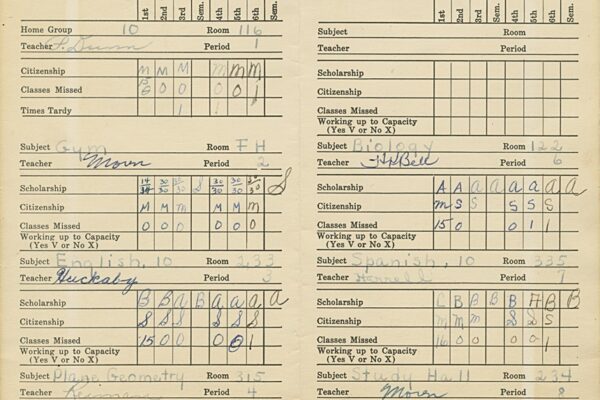 1st 2nd 3rd Sem. 4th 5th 6th Sem.
Home Group 10 Room 116
Teacher Period 1
Citizenship M M M M M M
Classes Missed 0 0 0 0 1
Times Tardy 1 1
Subject Gym Room F H
Teacher Moren Period 2
Scholarship 30/30 S 30/30 30/30 S
Citizenship M M m M M m
Classes Missed 0 0 0 0 0 0
Working up to Capacity
(Yes V or No X)
Subject English, 10 Room 233
Teacher Huckaby Period 3
Scholarship B B a B a a a a
Citizenship S S S S S S
Classes Missed 15 0 0 0 0 1
Working up to Capacity
(Yes V or No X)
Subject Plane Geometry Room 315
Teacher Period 4
1st 2nd 3rd Sem. 4th 5th 6th Sem.
Subject Room
Teacher Period
Scholarship
Citizenship
Classes Missed
Working up to Capacity
(Yes V or No X)
Subject Biology Room 122
Teacher Bell Period 6
Scholarship A A a a a a a a
Citizenship m S S S S S
Classes Missed 15 0 0 1 1
Working up to Capacity
(Yes V or No X)
Subject Spanish, 10 Room 335
Teacher Period 7
Scholarship C B B B B A B B
Citizenship m m m S S S
Classes Missed 16 0 0 0 0 1
Working up to Capacity
(Yes V or No X)
Subject Study Hall Room 234
Teacher Moren Period 8